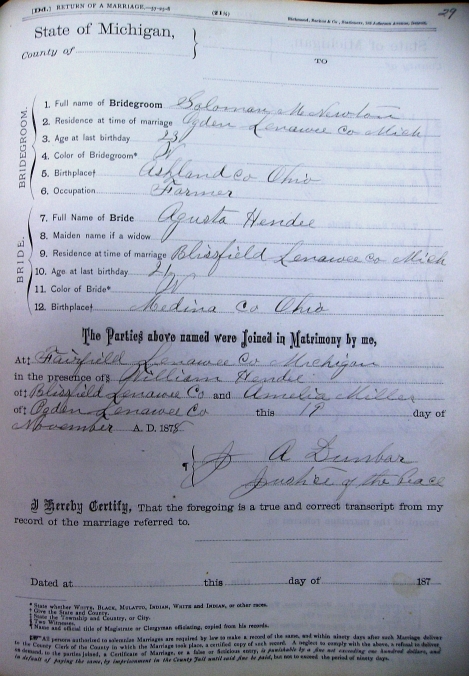 [Dd.] RETURN OF A MARRIAGE.
(21½)
29
State of Michigan,
County of
TO
BRIDEGROOM.
1. Full name of Bridegroom Soloman M Newton
2. Residence at time of marriage Ogden Lenawee Co Mich
3. Age at last birthday 23
4. Color of Bridegroom* W
5. Birthplace† Ashland Co Ohio
6. Occupation Farmer
BRIDE.
7. Full Name of Bride Agusta Hendee
8. Maiden name if a widow
9. Residence at time of marriage Blissfield Lenawee Co Mich
10. Age at last birthday
11. Color of Bride* W
12. Birthplace† Medina Co Ohio
The Parties above named were Joined in Matrimony by me,
At‡ Fairfield Lenawee Co Michigan
in the presence of§ William Hendee
of‡ Blissfield Lenawee Co and Amelia Miller
of‡ Ogden Lenawee Co this 19 day of
November A. D. 1878
¶ J A Dunbar
Justice of the Peace
I Hereby Certify, That the foregoing is a true and correct transcript from my
record of the marriage referred to.
Dated at this day of 187
* State whether WHITE, BLACK, MULATTO, INDIAN, WHITE AND INDIAN, or other races.
† Give the State and County.
‡ State the Township and County, or City.
§ Two Witnesses.
¶ Name and official title of Magistrate or Clergyman officiating, copied from his records.
All persons authorized to solemnize Marriages are required by law to make a record of the same, and within ninety days after such Marriage deliver
to the County Clerk of the County in which the Marriage took place, a certified copy of such record. A neglect to comply with the above, a refusal to deliver,
on demand, to the parties joined, a Certificate of Marriage, or a false or fictitious entry, is punishable by a fine not exceeding one hundred dollars, and
in default of paying the same, by imprisonment in the County Jail until said fine be paid, but not to exceed the period of ninety days.